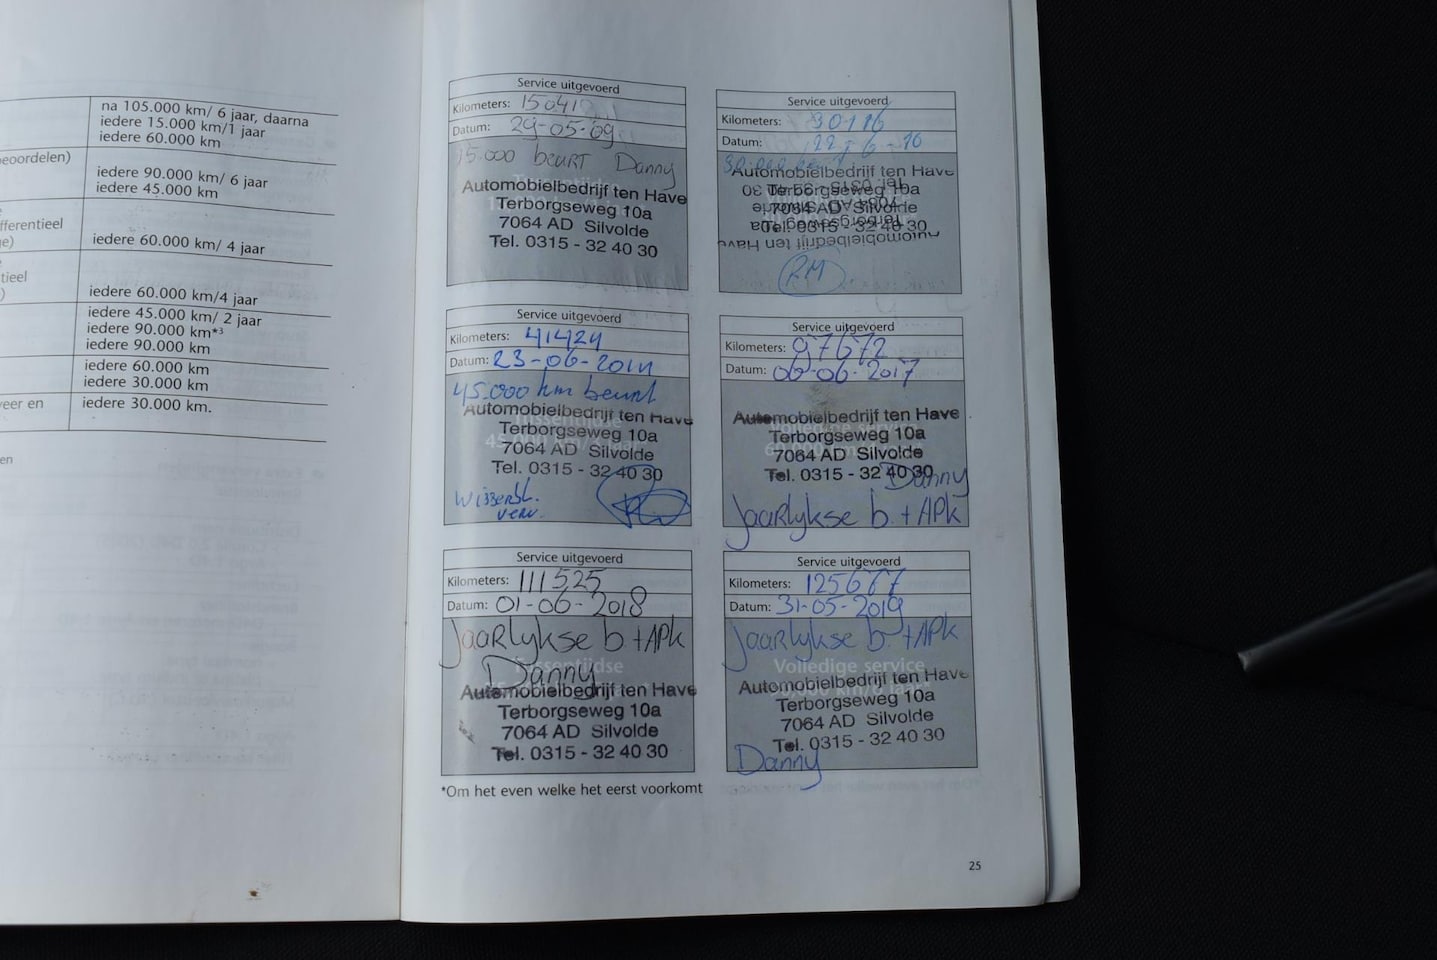 na 105.000 km/ 6 jaar, daarna
iedere 15.000 km/1 jaar
iedere 60.000 km
eoordelen)
iedere 90.000 km/ 6 jaar
iedere 45.000 km
fferentieel
ge)
iedere 60.000 km/ 4 jaar
tieel
)
iedere 60.000 km/4 jaar
iedere 45.000 km/ 2 jaar
iedere 90.000 km*³
iedere 90.000 km
iedere 60.000 km
iedere 30.000 km
veer en
iedere 30.000 km.
en
Service uitgevoerd
Kilometers: 15041
Datum: 29-05-09
15.000 beurt Danny
Automobielbedrijf ten Have
Terborgseweg 10a
7064 AD Silvolde
Tel. 0315 - 32 40 30
Service uitgevoerd
Kilometers: 30116
Datum: 22-6-10
Automobielbedrijf ten Have
Terborgseweg 10a
7064 AD Silvolde
Tel. 0315 - 32 40 30
RM
Service uitgevoerd
Kilometers: 41424
Datum: 23-06-2011
45.000 km beurt
Automobielbedrijf ten Have
Terborgseweg 10a
7064 AD Silvolde
Tel. 0315 - 32 40 30
Wisserbl.
verv.
Service uitgevoerd
Kilometers: 97672
Datum: 06-06-2017
Automobielbedrijf ten Have
Terborgseweg 10a
7064 AD Silvolde
Tel. 0315 - 32 40 30
Danny
Jaarlykse b. + APK
Service uitgevoerd
Kilometers: 111525
Datum: 01-06-2018
Jaarlykse b + APK
Danny
Automobielbedrijf ten Have
Terborgseweg 10a
7064 AD Silvolde
Tel. 0315 - 32 40 30
Service uitgevoerd
Kilometers: 125677
Datum: 31-05-2019
Jaarlykse b. + APK
Volledige service
Automobielbedrijf ten Have
Terborgseweg 10a
7064 AD Silvolde
Tel. 0315 - 32 40 30
Danny
*Om het even welke het eerst voorkomt
25